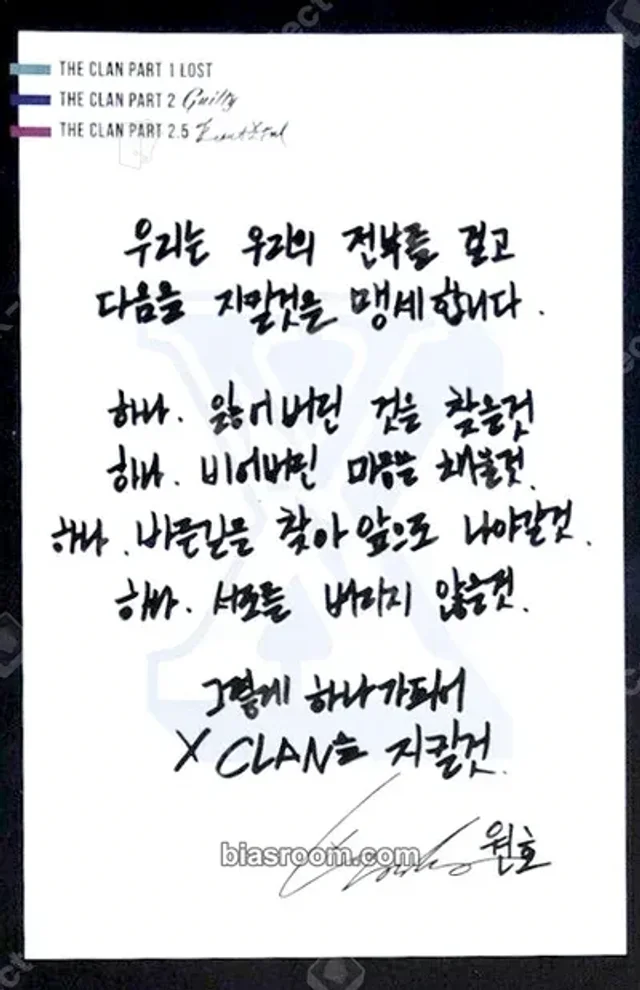 THE CLAN PART 1 LOST
THE CLAN PART 2 Guilty
THE CLAN PART 2.5 Beautiful
우리는 우리의 전부를 걸고
다음을 지킬것을 맹세합니다.
하나. 잃어버린 것을 찾을것
하나. 비어버린 마음을 채울것.
하나. 바른길을 찾아 앞으로 나아갈것.
하나. 서로를 버리지 않을것.
그렇게 하나가되어
X CLAN을 지킬것.
원호
biasroom.com